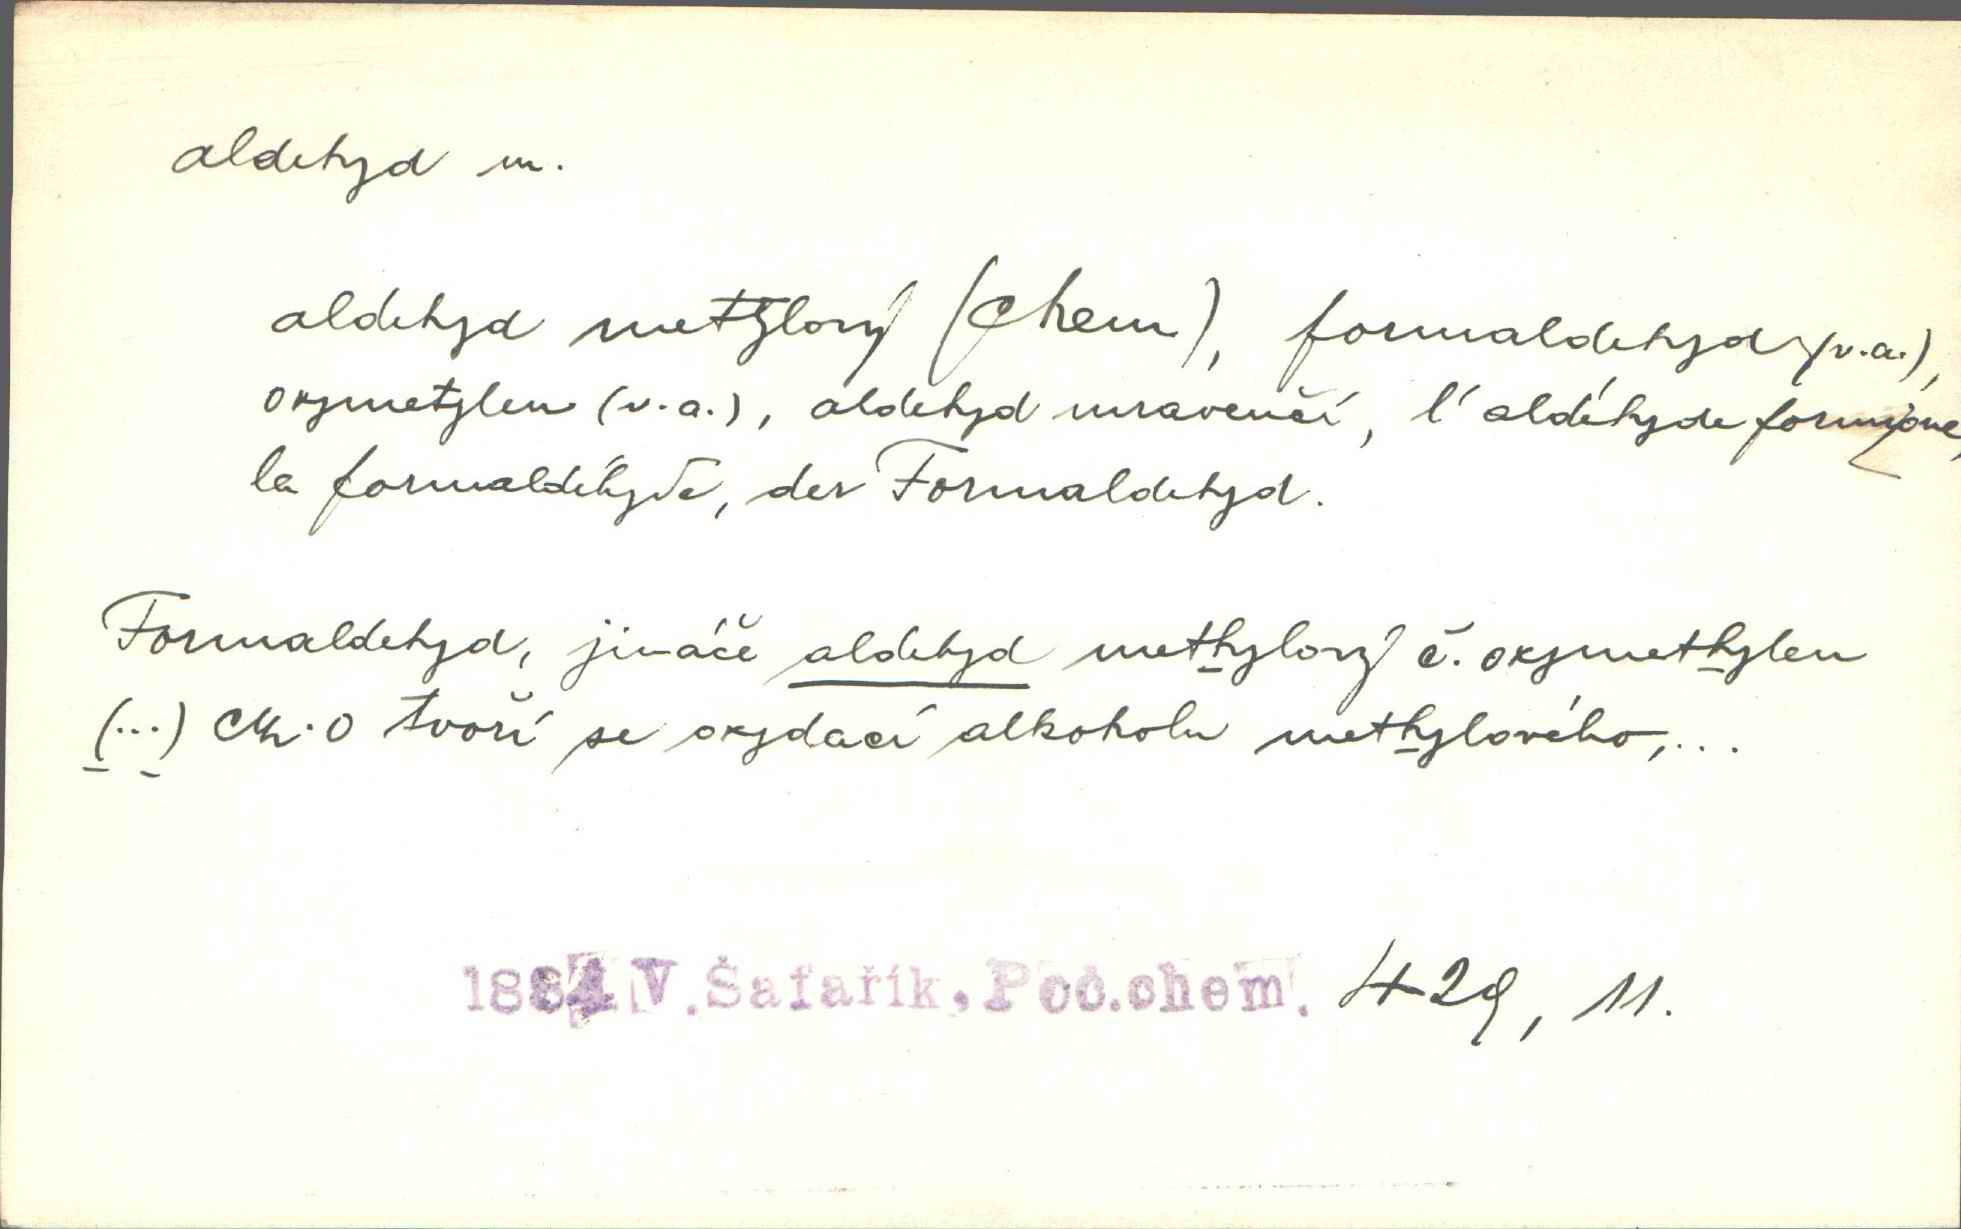 aldehyd m.
aldehyd metylový (chem), formaldehyd (v.a.),
oxymetylen (v.a.), aldehyd mravenčí, l'aldéhyde formique,
la formaldéhyde, der Formaldehyd.
Formaldehyd, jináče aldehyd methylový č. oxymethylen
(...) CH₂.O tvoří se oxydací alkoholu methylového,...
V. Šafařík, Poč.chem. 429, 11.